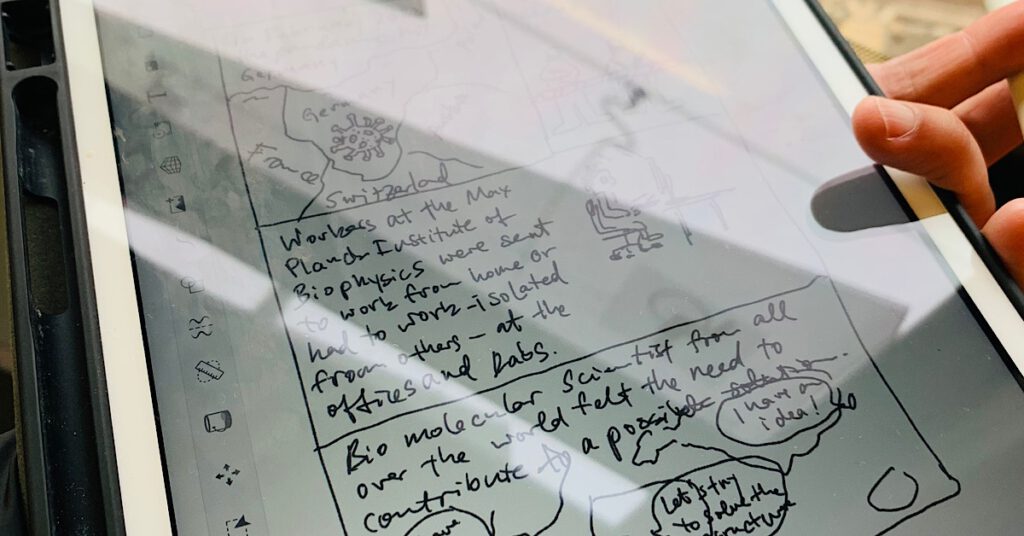 Germany
France
Switzerland
Workers at the Max
Planck Institute of
Biophysics were sent
to work from home or
had to work - isolated
from others - at the
offices and Labs.
Bio molecular Scientist from all
over the world felt the need to
contribute to a possible solution.
I have an
idea!
Let's try
to solve the
structure